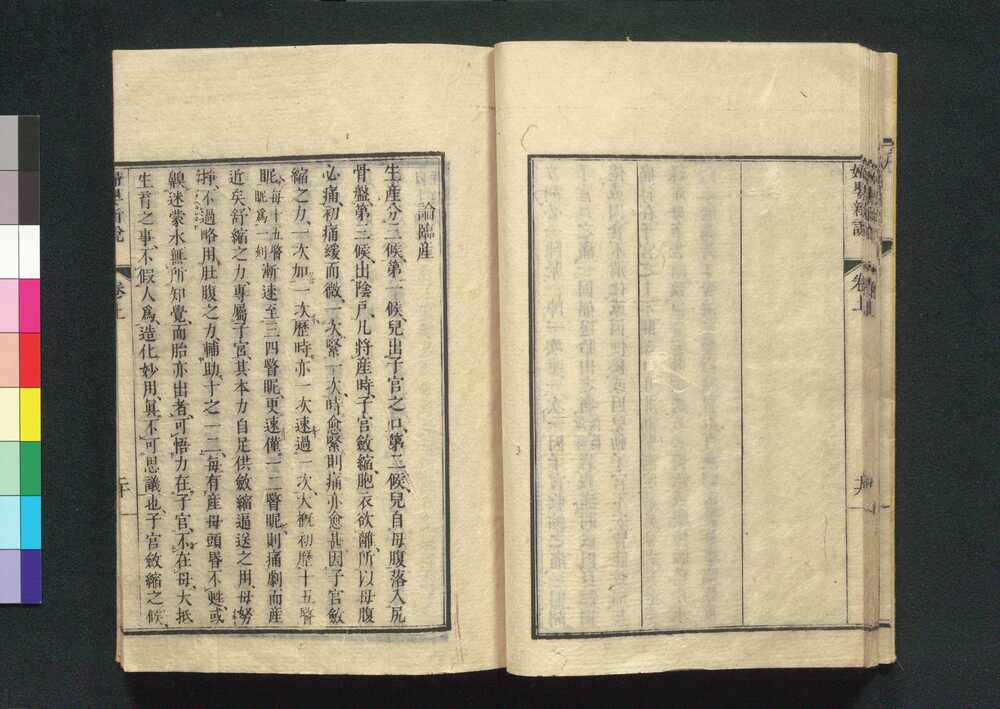 婦嬰新說 卷上
論臨產
生產分三候、第一候、兒出子宮之口、第二候、兒自母腹落入尻
骨盤、第三候、出陰戶、凡將產時、子宮斂縮、胞衣欲離、所以母腹
必痛、初痛緩而微、一次緊一次、時愈緊則痛亦愈甚、因子宮斂
縮之力、一次加一次、歷時亦一次速過一次、大概初歷十五瞥
眤、每十五瞥眤為一刻漸速至三四瞥眤、更速僅一二瞥眤、則痛劇而產
近矣、舒縮之力、專屬子宮、其本力自足供斂縮逼送之用、母努
掙、不過略用肚腹之力、輔助十之一二、每有產母頭昏不甦、或
線迷蒙水無所知覺、而胎亦出者、可悟力在子宮、不在母、大抵
生育之事、不假人為、造化妙用、真不可思議也、子宮斂縮之候、
婦嬰新說 卷上 二十